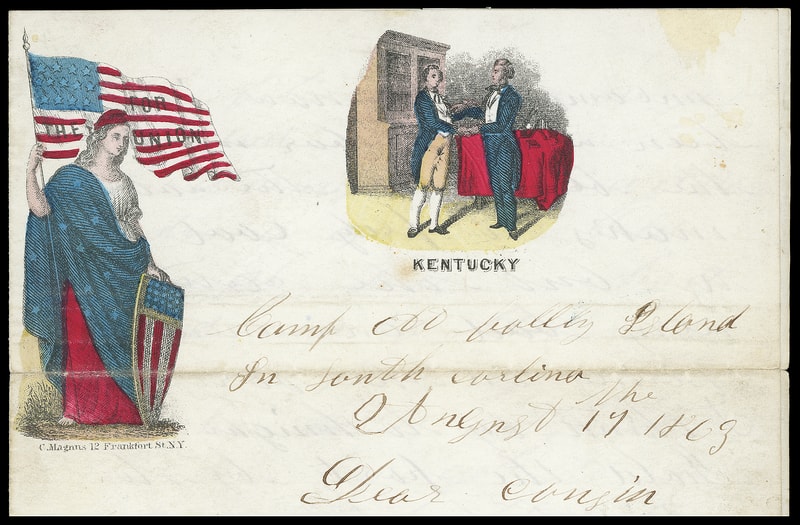 FOR
THE UNION.
KENTUCKY
C. Magnus 12 Frankfort St. N.Y.
Camp At folly Island
In South carlina
August the 17 1863
Dear cousin